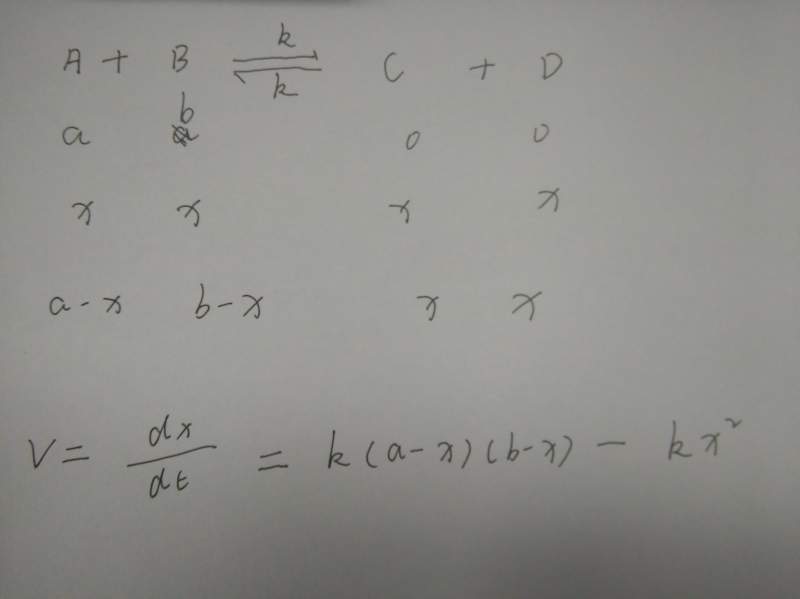 A + B ⇌ C + D
k
k
a b 0 0
x x x x
a-x b-x x x
V = dx/dt = k(a-x)(b-x) - kx²